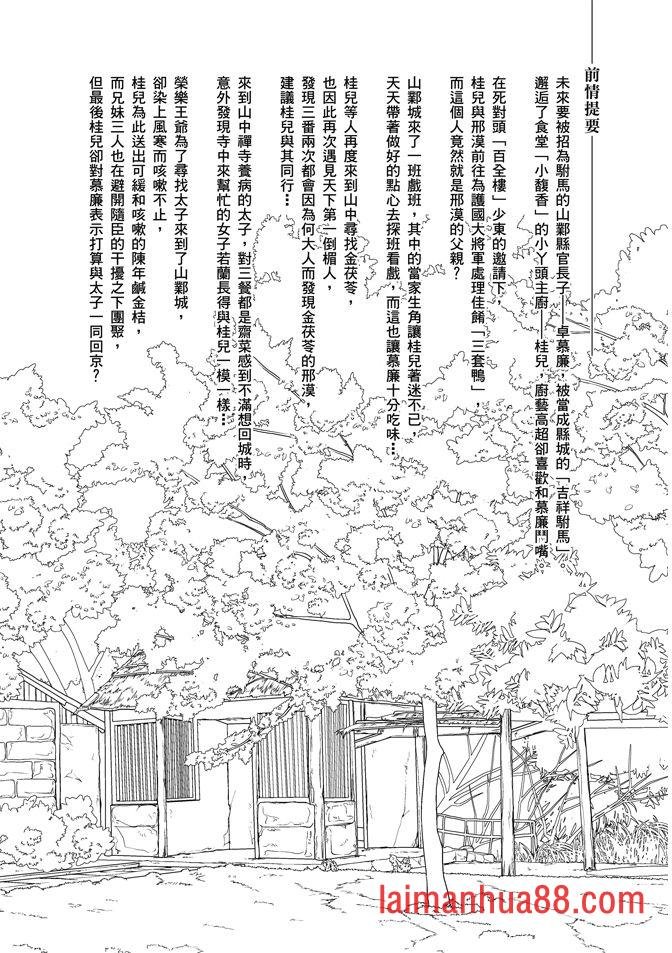 前情提要
未來要被招為駙馬的山鄴縣官長子——卓慕廉，被當成縣城的「吉祥駙馬」。
邂逅了食堂「小馥香」的小丫頭主廚——桂兒，廚藝高超卻喜歡和慕廉鬥嘴。
在死對頭「百全樓」少東的邀請下，
桂兒與邢漠前往為護國大將軍處理佳餚「三套鴨」，
而這個人竟然就是邢漠的父親？
山鄴城來了一班戲班，其中的當家生角讓桂兒著迷不已，
天天帶著做好的點心去探班看戲，而這也讓慕廉十分吃味…
桂兒等人再度來到山中尋找金茯苓，
也因此再次遇見天下第一倒楣人，
發現三番兩次都會因為何大人而發現金茯苓的邢漠，
建議桂兒與其同行…
來到山中禪寺養病的太子，對三餐都是齋菜感到不滿想回城時，
意外發現寺中來幫忙的女子若蘭長得與桂兒一模一樣…
榮樂王爺為了尋找太子來到了山鄴城，
卻染上風寒而咳嗽不止，
桂兒為此送出可緩和咳嗽的陳年鹹金桔，
而兄妹三人也在避開隨臣的干擾之下團聚，
但最後桂兒卻對慕廉表示打算與太子一同回京？
laimanhua88.com